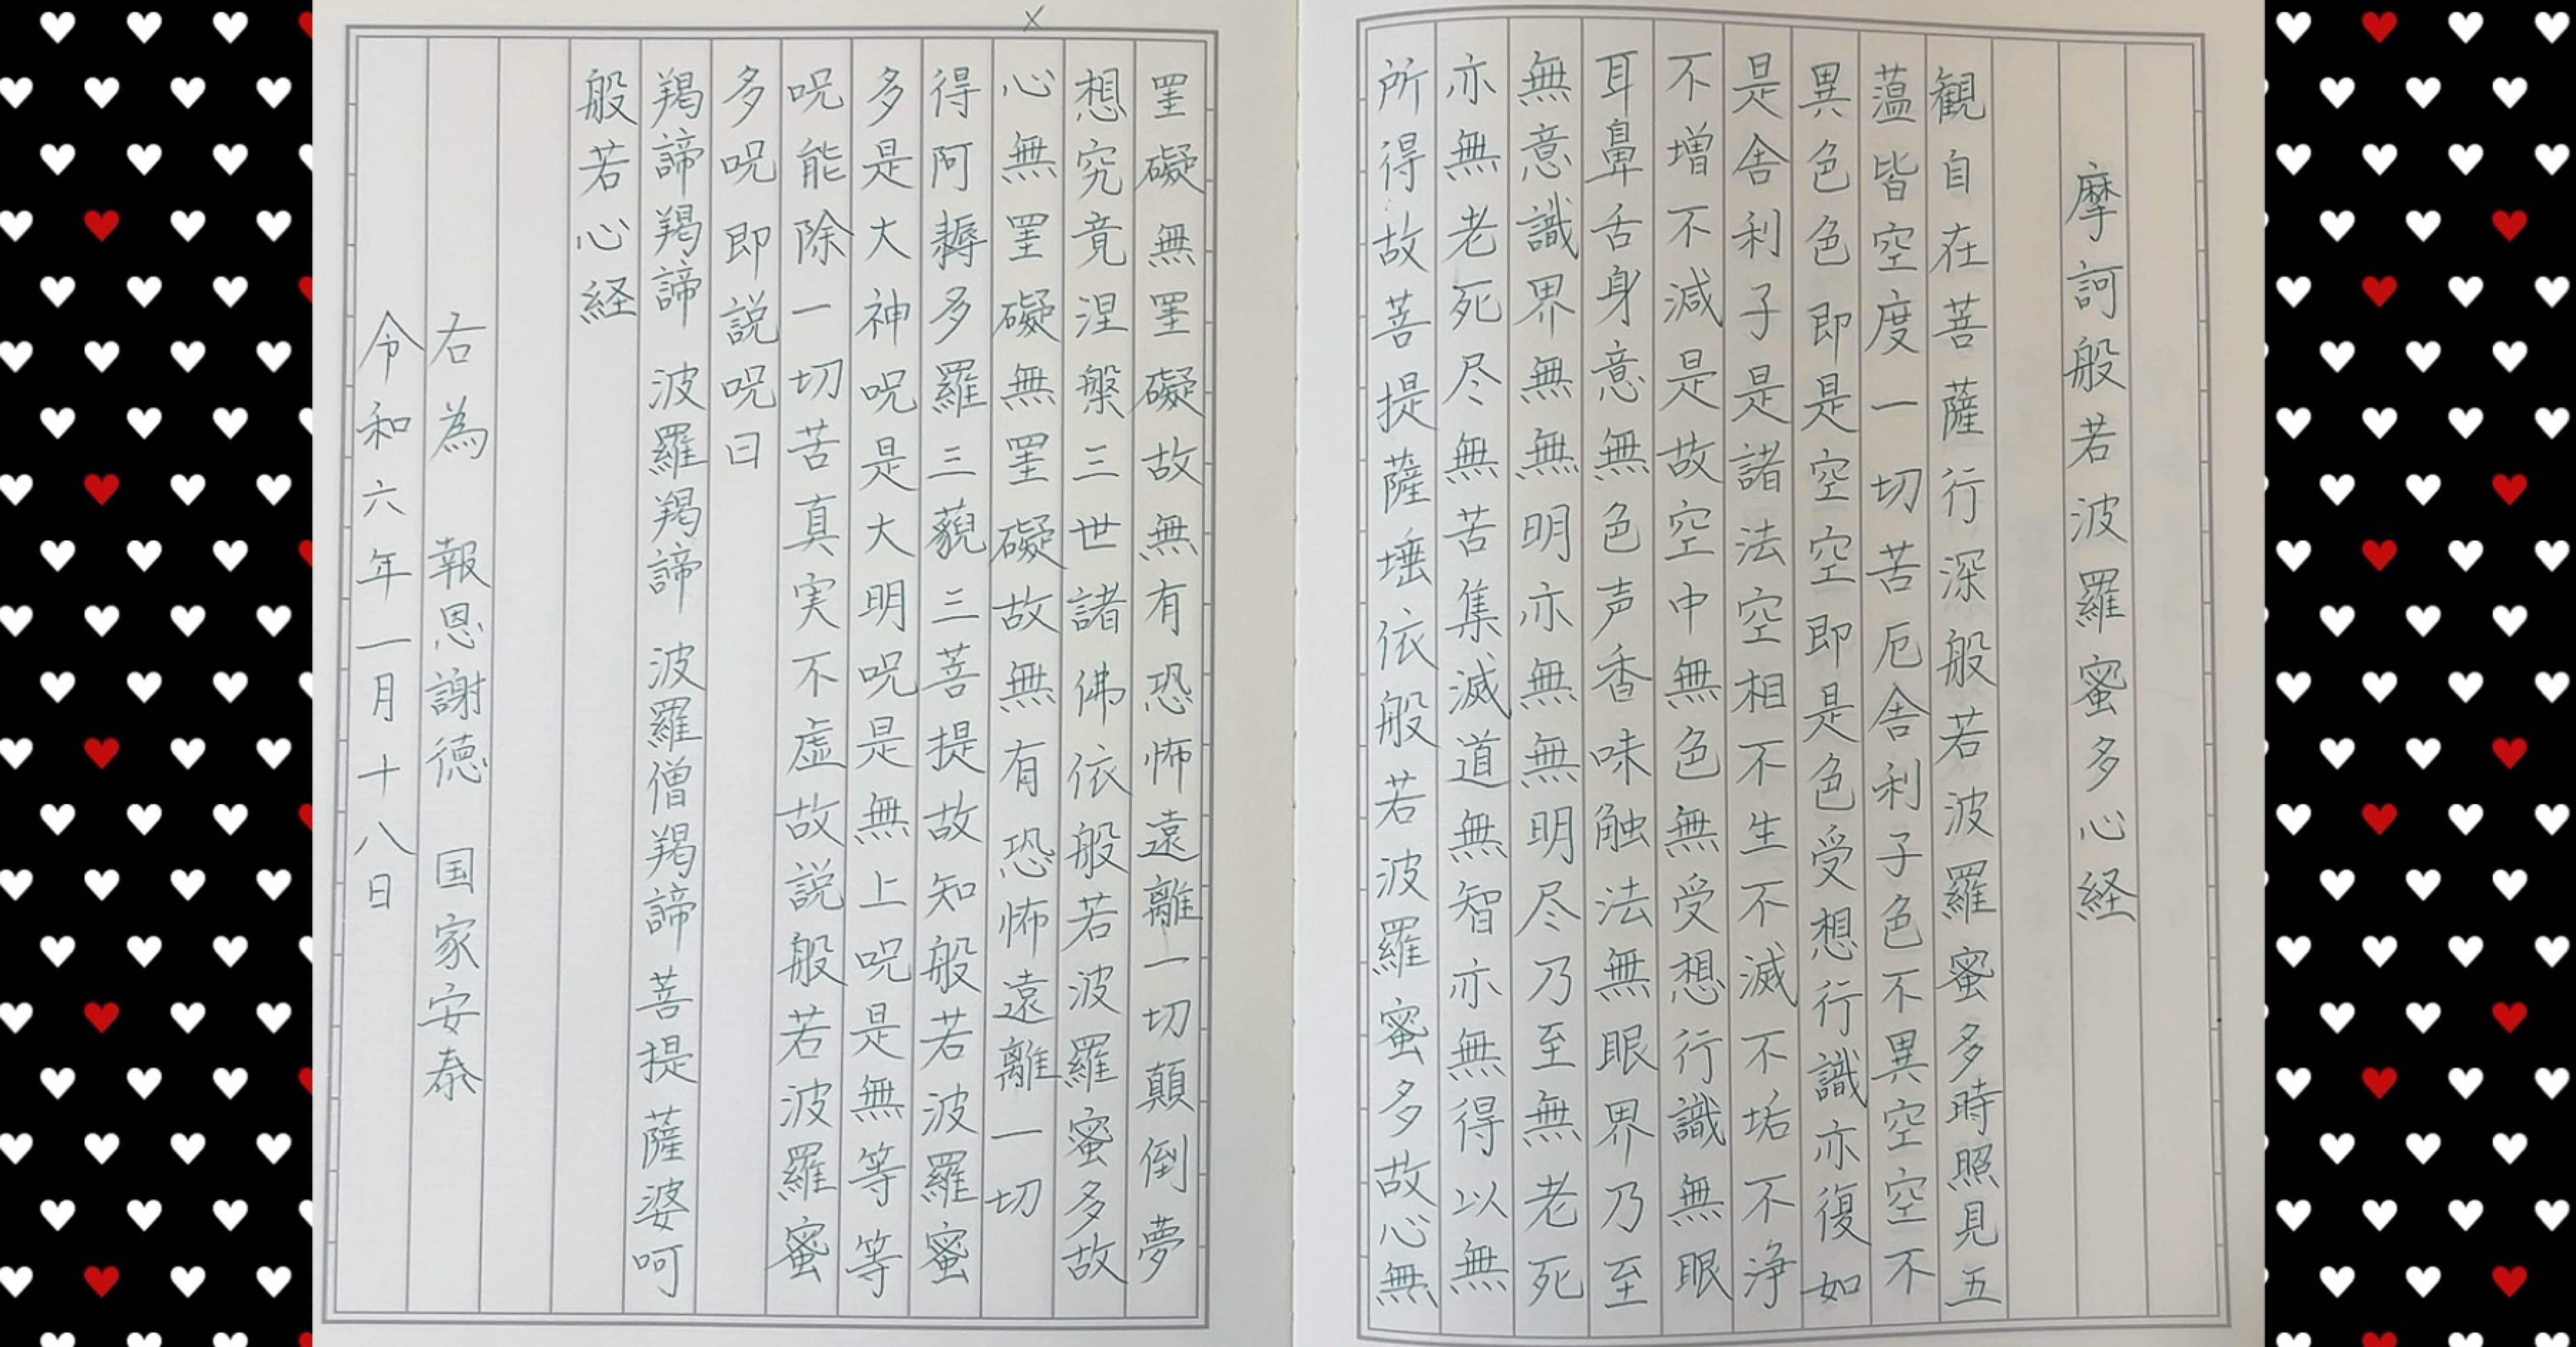 摩訶般若波羅蜜多心経
観自在菩薩行深般若波羅蜜多時照見五
蘊皆空度一切苦厄舎利子色不異空空不
異色色即是空空即是色受想行識亦復如
是舎利子是諸法空相不生不滅不垢不浄
不増不減是故空中無色無受想行識無眼
耳鼻舌身意無色声香味触法無眼界乃至
無意識界無無明亦無無明尽乃至無老死
亦無老死尽無苦集滅道無智亦無得以無
所得故菩提薩埵依般若波羅蜜多故心無
罣礙無罣礙故無有恐怖遠離一切顛倒夢
想究竟涅槃三世諸佛依般若波羅蜜多故
×
心無罣礙無罣礙故無有恐怖遠離一切
得阿耨多羅三藐三菩提故知般若波羅蜜
多是大神呪是大明呪是無上呪是無等等
呪能除一切苦真実不虚故説般若波羅蜜
多呪即説呪曰
羯諦羯諦 波羅羯諦 波羅僧羯諦 菩提薩婆呵
般若心経
右為 報恩謝徳 国家安泰
令和六年一月十八日